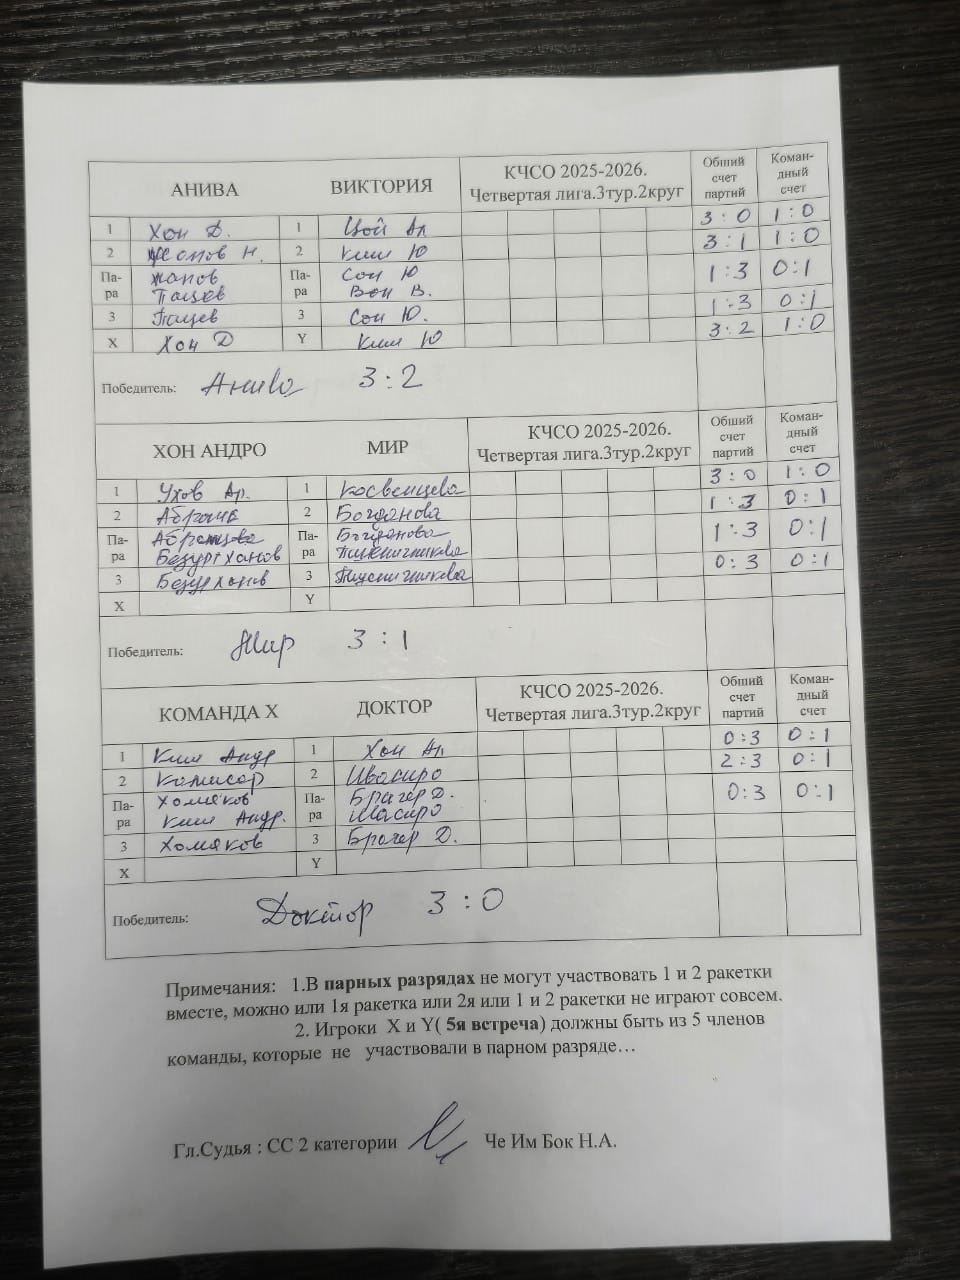 АНИВА ВИКТОРИЯ КЧСО 2025-2026. Четвертая лига.3тур.2круг Общий счет партий Коман-дный счет
1 Хон Д. 1 Цой Ал 3:0 1:0
2 Жапов Н. 2 Ким Ю 3:1 1:0
Па-ра Жапов Пашев Па-ра Сон Ю Вон В. 1:3 0:1
3 Пашев 3 Сон Ю. 1-3 0:1
X Хон Д Y Ким Ю 3:2 1:0
Победитель: Анива 3:2
ХОН АНДРО МИР КЧСО 2025-2026. Четвертая лига.3тур.2круг Общий счет партий Коман-дный счет
1 Ухов Ар. 1 Косвенцева 3:0 1:0
2 2 Богданова 1:3 0:1
Па-ра Безургханов Па-ра Богданова Пшеничникова 1:3 0:1
3 3 Пшеничникова 0:3 0:1
X Y
Победитель: Мир 3:1
КОМАНДА Х ДОКТОР КЧСО 2025-2026. Четвертая лига.3тур.2круг Общий счет партий Коман-дный счет
1 Ким Андр 1 Хон Ар 0:3 0:1
2 Комисар 2 Ивасиро 2:3 0:1
Па-ра Хомяков Ким Андр. Па-ра Брагер Д. Ивасиро 0:3 0:1
3 Хомяков 3 Брагер Д.
X Y
Победитель: Доктор 3:0
Примечания: 1.В парных разрядах не могут участвовать 1 и 2 ракетки
вместе, можно или 1я ракетка или 2я или 1 и 2 ракетки не играют совсем.
2. Игроки X и Y( 5я встреча) должны быть из 5 членов
команды, которые не участвовали в парном разряде…
Гл.Судья : СС 2 категории Че Им Бок Н.А.